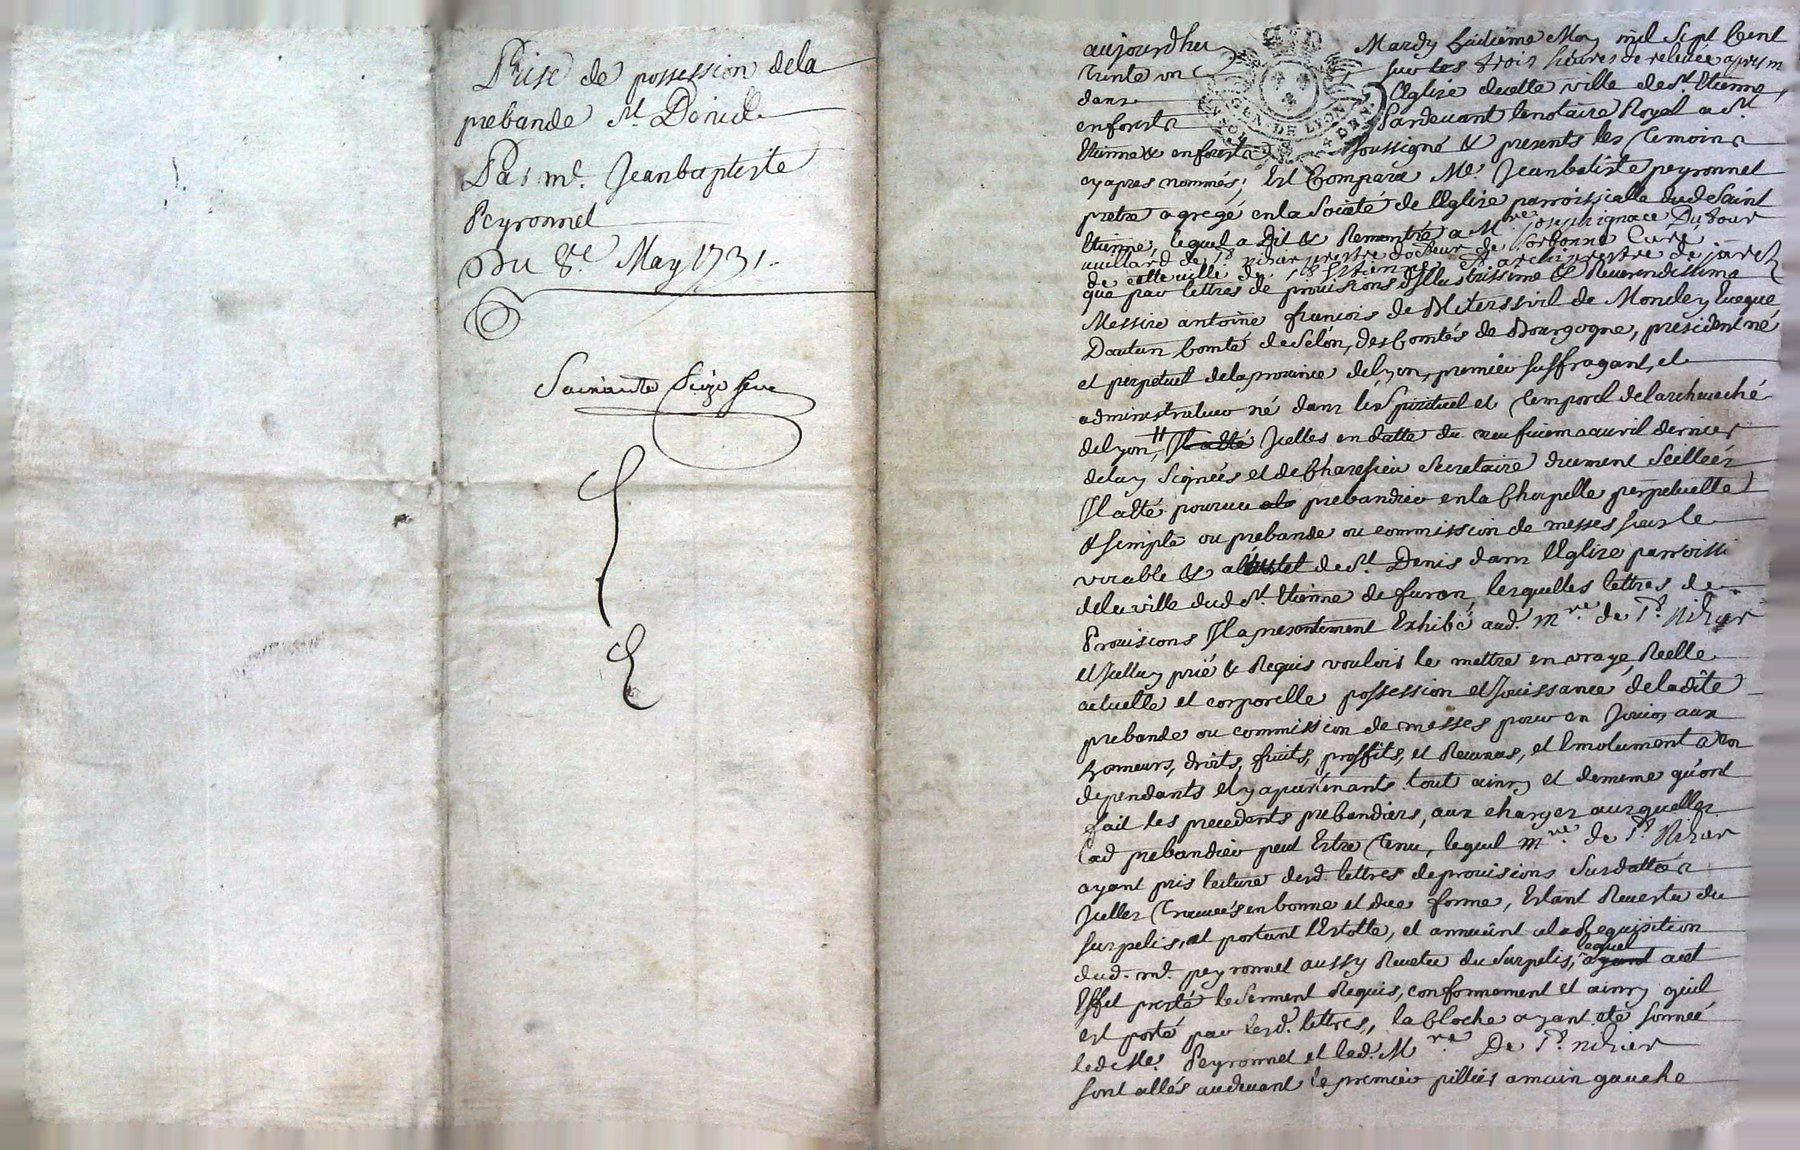 Prise de possession dela
prebande St. Denid
Par me. Jeanbaptiste
Peyronnet
Du 8e. May 1731.
Soixante Seize
aujourdhuy Mardy huitieme May mil Sept Cent
trinte un sur les trois heures de relevée apres m
dans l'Eglise decette ville de St. Etienne,
enforets Pardevant lenotaire Royal a St.
GEN. DE LYON
Etienne enforets soussigné & presents les temoins
cy apres nommés; Est Comparu Me Jeanbatiste peyronnet
pretre agregé enla Societé de l'Eglise parroissialle dud Saint
Etienne, lequel a Dit & Remontré a Mre Joseph ignace Dufour
villard de St. pretre docteur de Sorbonne Curé
de cette ville de St Etienne & archipretre de jarez
que par lettres de provisions d'Illustrissime & Reverendissime
Messire antoine francois de de Moncley Eveque
Dautun Comte deSelon, des Comtés de Bourgogne, president né
et perpetuel delaprovince delyon, premier suffragant, et
administrateur né dans le Spirituel et temporel delarcheveché
delyon, Icelles en datte du neufiem avril dernier
deluy Signées et de Secretaire duement Scellées
Il aeté pourveu prebandier enla Chapelle perpetuelle
& simple ou prebande ou commission de messes sous le
vocable & de St. Denis dans l'Eglise parroissi
dela ville dud St. Etienne de furan, lesquelles lettres de
Provisions Il a presentement Exhibé aud. mre. de St. Nizier
et Icelluy prié & Requis vouloir le mettre en vraye Réelle
actuelle et corporelle possession et Jouissance deladite
prebande ou commission de messes pour en Jouir aux
honneurs, droits, fruits, proffits, et Revenus, et Emolument a
dependants et y apartenants tout ainsy et dememe qu'ont
fait les precedents prebandiers, aux charges auxquelles
Led prebandier peut Estre Tenu, lequel mre. de St. Nizier
ayant pris lecture desd. lettres deprovisions Susdattées
Icelles trouvées en bonne et due forme, Estant Revestu du
surpelis, et portant l'Estolle, et annuant ala Requisition
dud. me. peyronnet aussy Revetu du Surpelis, lequel a cet
Effet presté leserment Requis, conformement et ainsy quil
est porté par lesd. lettres, la Cloche ayant eté sonnée
led Me. Peyronnet et led. Mre De St. nizier
sont allés audevant le premier pillier amain gauche